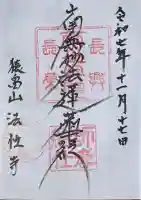 令和七年十一月十七日
南無妙法蓮華経
長興
長栄
法性寺